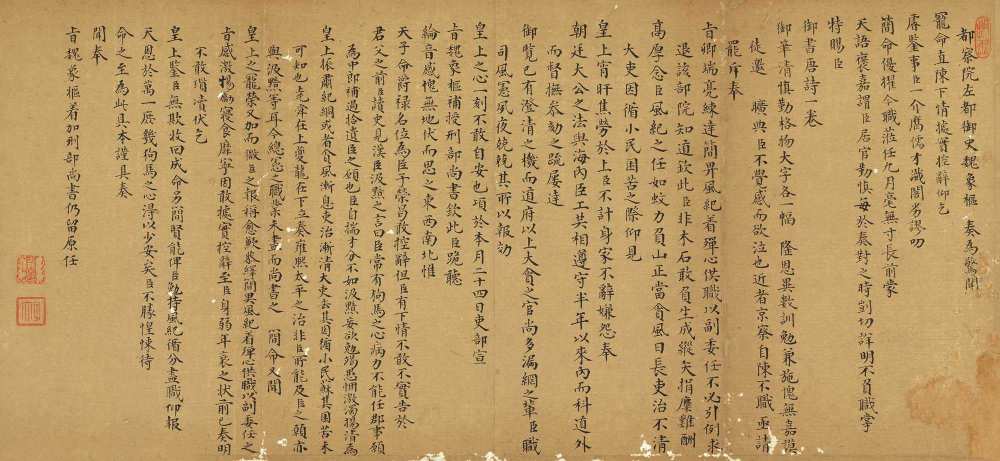 都察院左都御史魏象樞　奏為驚聞
寵命直陳下情據實控辭仰乞
睿鑒事臣一介庸儒才識闇劣謬叨
簡命優擢今職蒞任九月毫無寸長前蒙
天語褒嘉謂臣居官勤慎每於奏對之時剴切詳明不負職掌
特賜臣
御書唐詩一卷
御筆清慎勤格物大字各一幅　隆恩異數訓勉兼施愧無嘉謨
徒邀　曠典臣不覺感而欲泣也近者京察自陳不職亟請
罷斥奉
旨卿端亮練達簡畀風紀着殫心供職以副委任不必引例求
退該部院知道欽此臣非木石敢負生成縱矢捐糜難酬
高厚念臣風紀之任如蚊力負山正當貪風日長吏治不清
大吏因循小民困苦之際仰見
皇上宵旰焦勞於上臣不計身家不辭嫌怨奉
朝廷大公之法與海內臣工共相遵守半年以來內而科道外
而督撫參劾之疏屢達
御覽已有澄清之機而道府以上大貪之官尚多漏網之輩臣職
司風憲夙夜兢兢其所以報効
皇上之心一刻不敢自安也項於本月二十四日吏部宣
旨魏象樞補授刑部尚書欽此臣跪聽
綸音感愧無地伏而思之東西南北惟
天子命爵祿名位為臣子榮曷敢控辭但臣有下情不敢不實告於
君父之前臣讀史見漢臣汲黯之言曰臣常有狗馬之心病力不能任郡事願
為中郎補過拾遺臣之願也臣自揣才分不如汲黯妄欲勉竭愚忠激濁揚清為
皇上振肅紀綱或者貪風漸息吏治漸清大吏去其因循小民蘇其困苦未
可知也堯舜在上夔龍在下立奏雍熙太平之治非臣所能及臣之願亦
與汲黯等耳今總憲之職業未盡而尚書之　簡命又聞
皇上之寵榮又加而微臣之報稱愈歉恭繹簡畀風紀着殫心供職以副委任之
旨感激惕勵寢食靡寧因敢據實控辭至臣身弱年衰之狀前已奏明
不敢瑣瀆伏乞
皇上鑒臣無欺收回成命另簡賢能俾臣勉持風紀循分盡職仰報
天恩於萬一庶幾狗馬之心淂以少安矣臣不勝惶悚待
命之至為此具本謹具奏
聞奉
旨魏象樞着加刑部尚書仍留原任